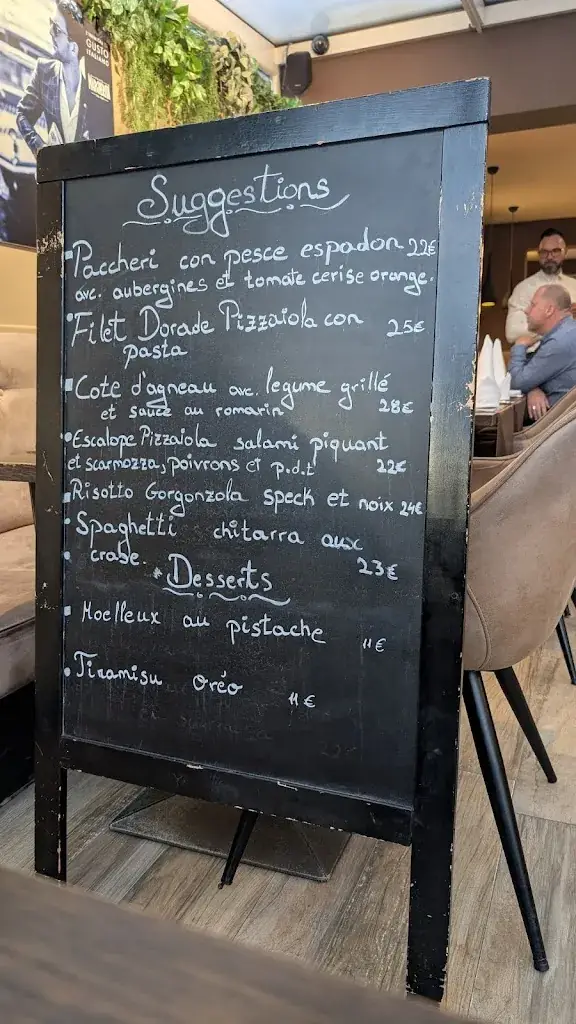 GUSTO
ITALIANO
Suggestions
Paccheri con pesce espadon 22€
avc. aubergines et tomate cerise orange.
Filet Dorade Pizzaiola con 25€
pasta
Cote d'agneau avc. legume grillé
et sauce au romarin 28€
Escalope Pizzaiola salami piquant
et scarmozza, poivrons et p.d.t 22€
Risotto Gorgonzola speck et noix 24€
Spaghetti chitarra aux
crabe 23€
Desserts
Moelleux au pistache 11€
Tiramisu Oréo 11€